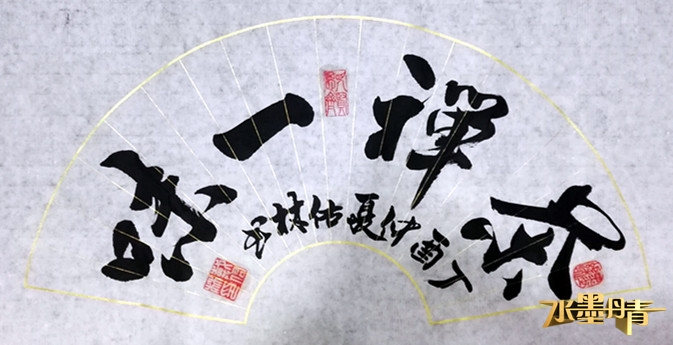 茶禪一味
丁酉仲夏佑林书
水墨丹青